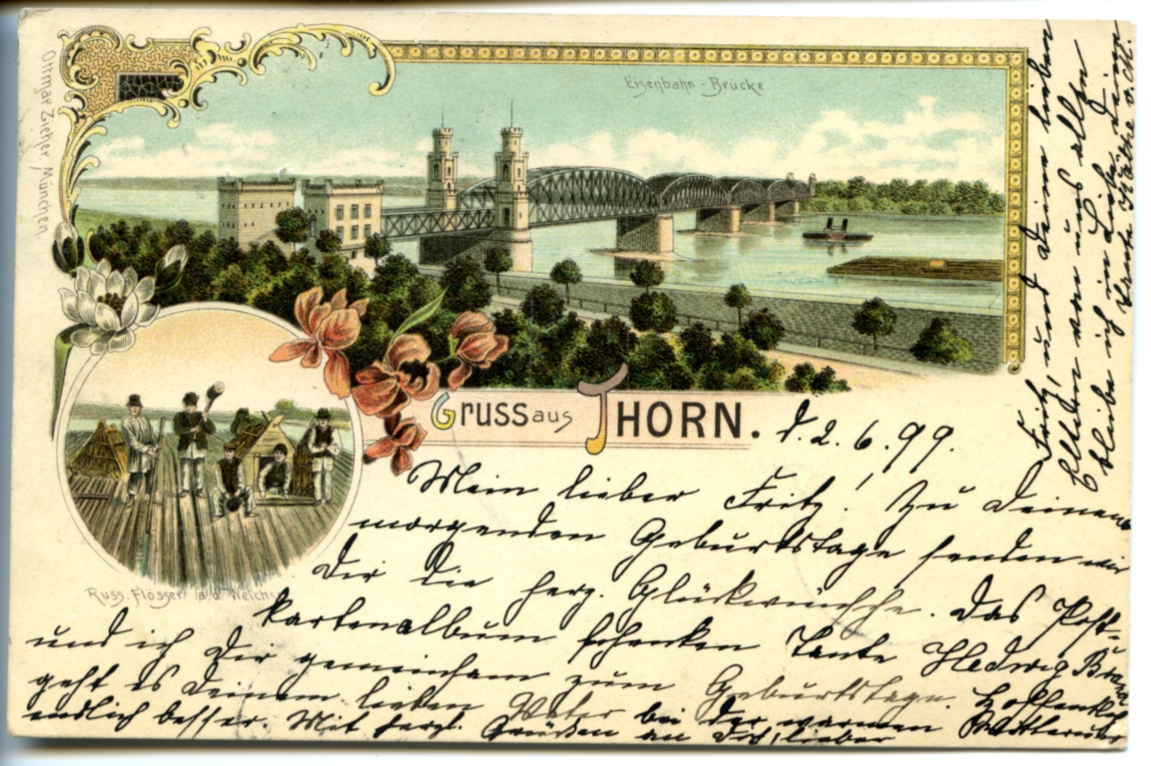 Ottmar Zieher, München.
Eisenbahn-Brücke
Gruss aus THORN.
Russ. Flösser a/d Weichs
d. 2. 6. 99.
Mein lieber Fritz! Zu Deinem
morgenden Geburtstage senden wir
Dir die herz. Glückwünsche. Das Post-
kartenalbum schenken Tante Hedwig
und ich Dir gemeinsam zum Geburtstage. Hoffentlich
geht es Deinem lieben Vater bei der warmen Witterung
endlich besser. Mit herzl. Grüßen an Dich, lieber
Fritz, und Deine lieben
Eltern von uns allen
bleibe ich in Liebe Deine
Tante Käthe v. M.